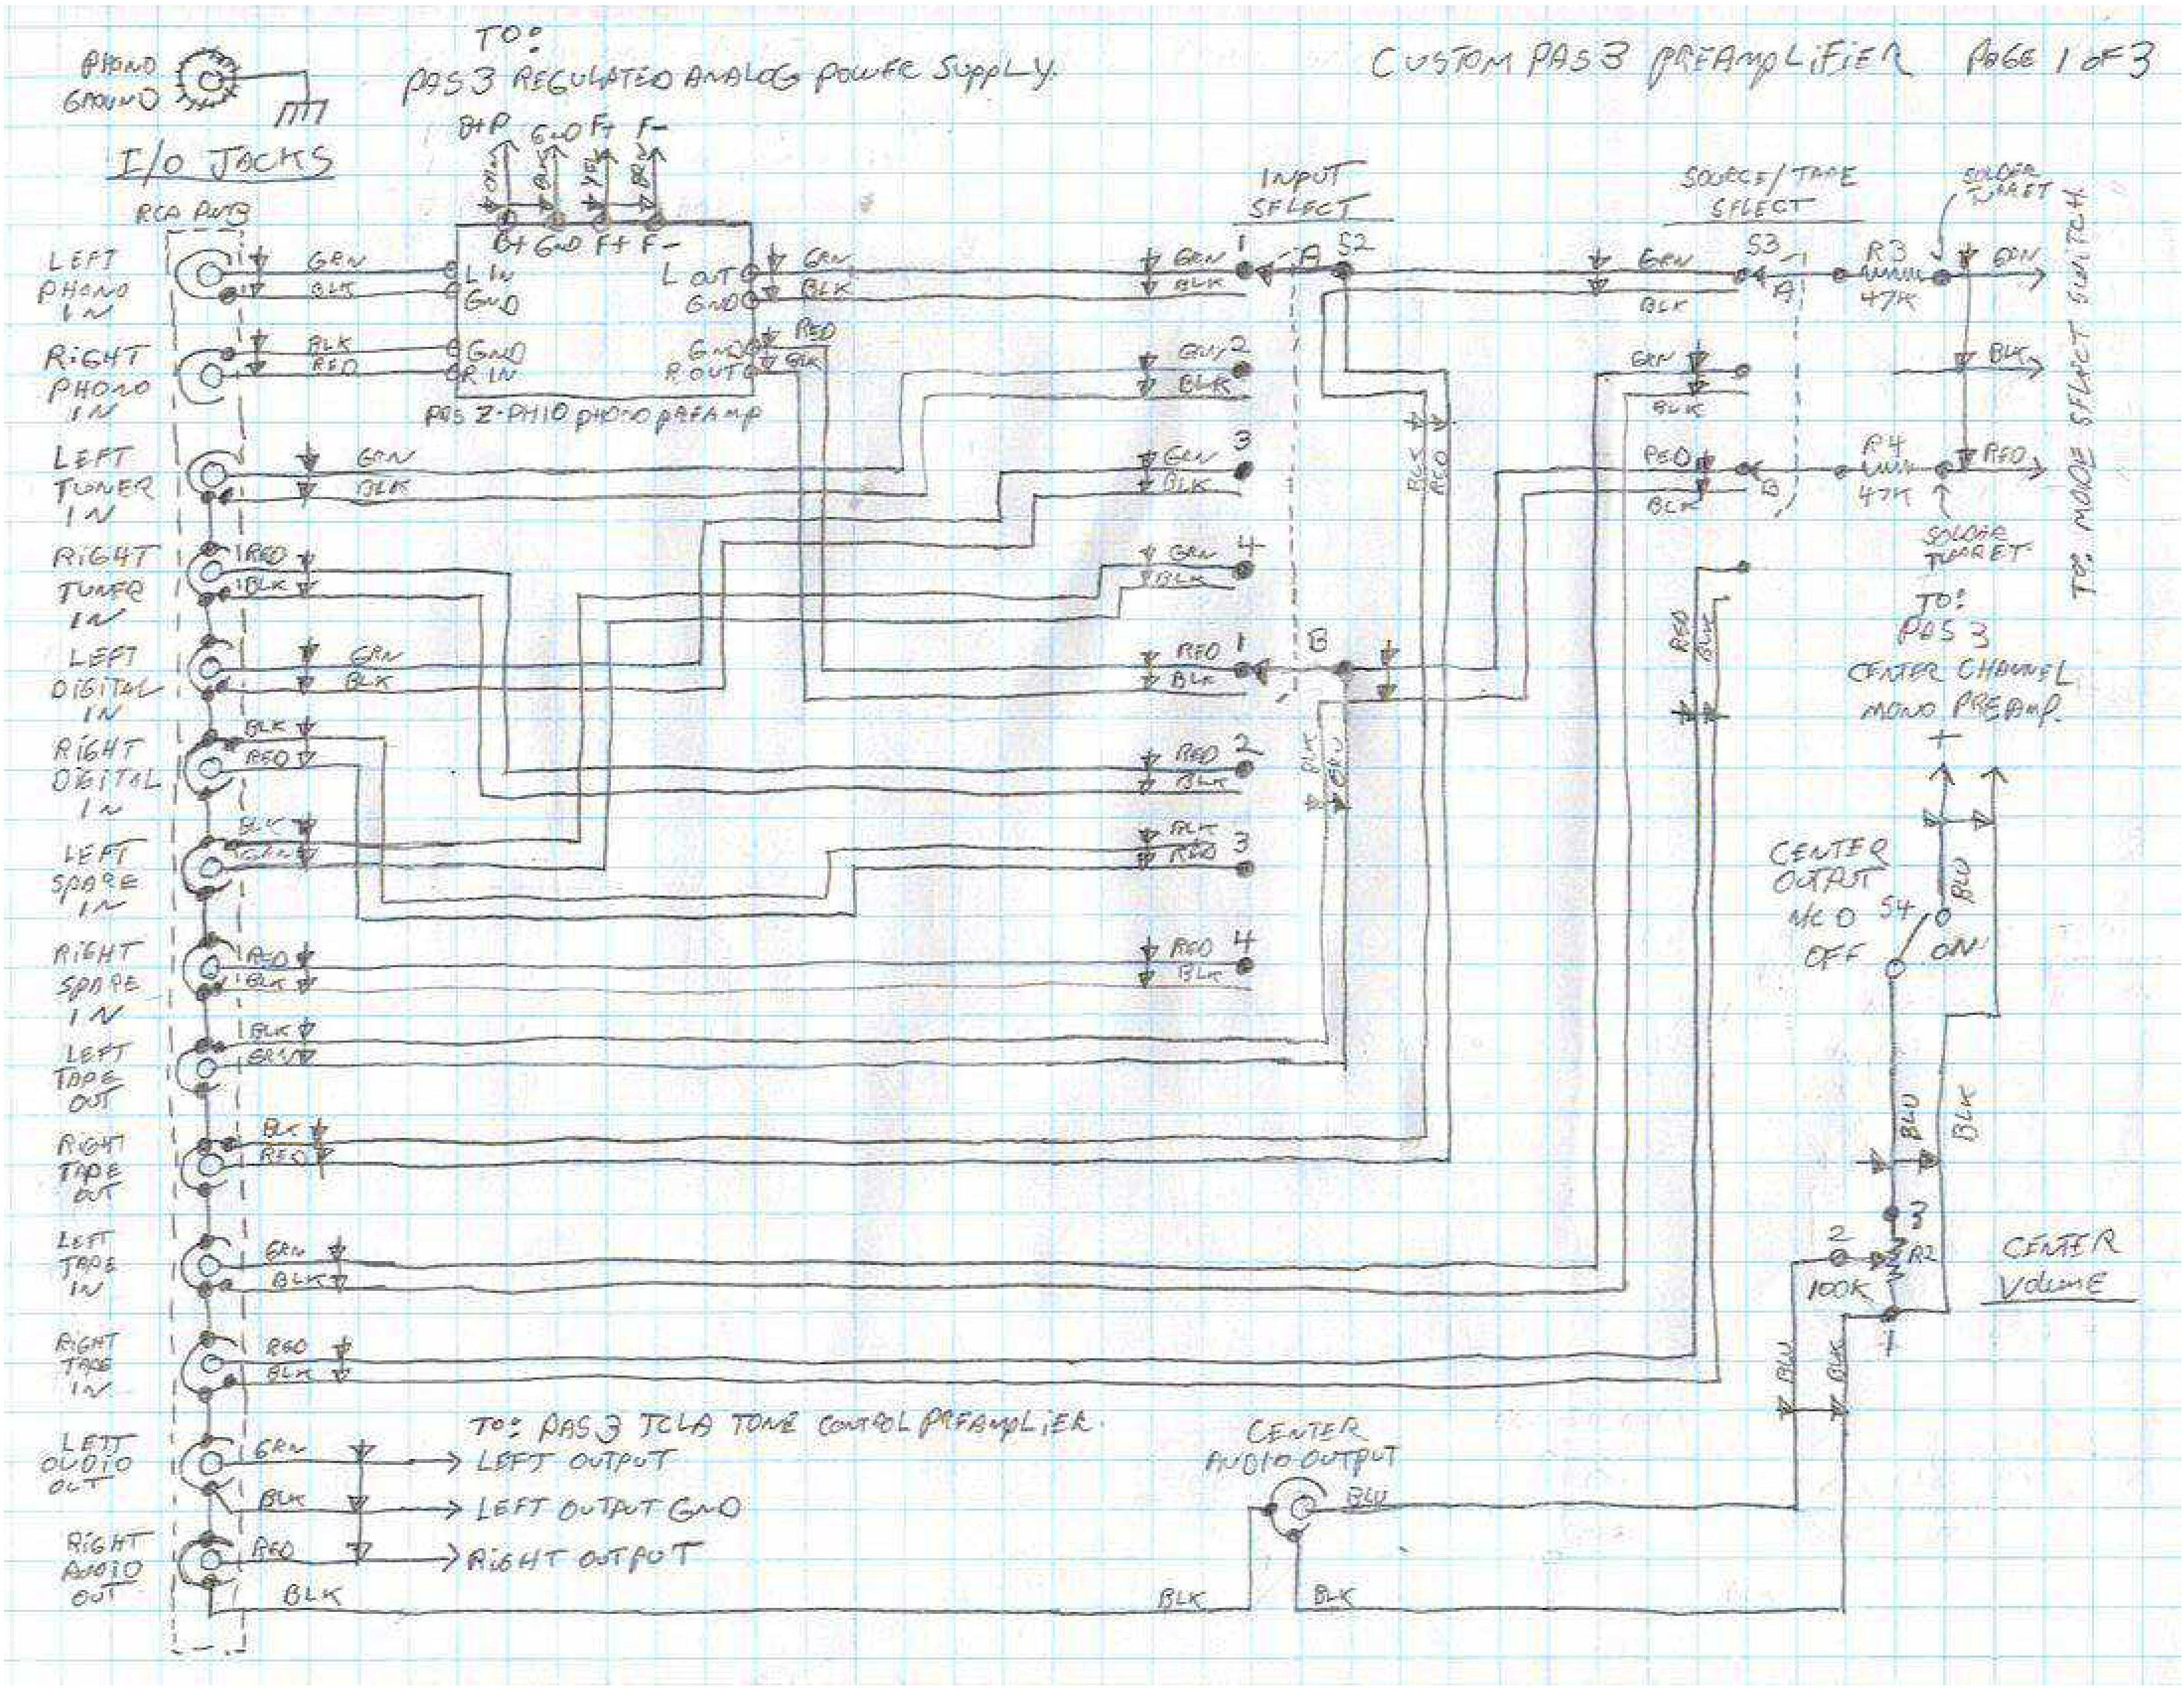 TO:
PAS 3 REGULATED ANALOG POWER SUPPLY.
CUSTOM PAS 3 PREAMPLIFIER PAGE 1 OF 3
PHONO
GROUND
I/O JACKS
B+P GND F+ F-
BLK YEL BRN
B+ GND F+ F-
L IN
GND
GND
R IN
L OUT
GND
GND
R OUT
PAS 2-PH10 PHONO PREAMP
INPUT
SELECT
SOURCE/TAPE
SELECT
SOLDER
TURRET
TO: MODE SELECT SWITCH
LEFT
PHONO
IN
GRN
BLK
GRN
BLK
GRN 1 A S2
BLK
GRN
BLK
S3
A
R3
47K
GRN
RIGHT
PHONO
IN
BLK
RED
RED
BLK
GRN 2
BLK
GRN
BLK
BLK
LEFT
TUNER
IN
GRN
BLK
GRN 3
BLK
BLK
RED
RED
BLK
B
R4
47K
RED
SOLDER
TURRET
RIGHT
TUNER
IN
RED
BLK
GRN 4
BLK
RED
BLK
TO:
PAS 3
CENTER CHANNEL
MONO PREAMP.
+
LEFT
DIGITAL
IN
GRN
BLK
RED 1 B
BLK
RIGHT
DIGITAL
IN
BLK
RED
RED 2
BLK
BLK
GRN
LEFT
SPARE
IN
BLK
GRN
BLK
RED 3
CENTER
OUTPUT
N/C O S4
OFF
ON
BLU
RIGHT
SPARE
IN
RED
BLK
RED 4
BLK
LEFT
TAPE
OUT
BLK
GRN
RIGHT
TAPE
OUT
BLK
RED
BLU
BLK
LEFT
TAPE
IN
GRN
BLK
3
2 R2
100K
1
CENTER
VOLUME
RIGHT
TAPE
IN
RED
BLK
BLU
BLK
TO: PAS 3 TCLA TONE CONTROL PREAMPLIER.
LEFT
AUDIO
OUT
GRN
LEFT OUTPUT
BLK
LEFT OUTPUT GND
RIGHT
AUDIO
OUT
RED
RIGHT OUTPUT
BLK
CENTER
AUDIO OUTPUT
BLU
BLK
BLK